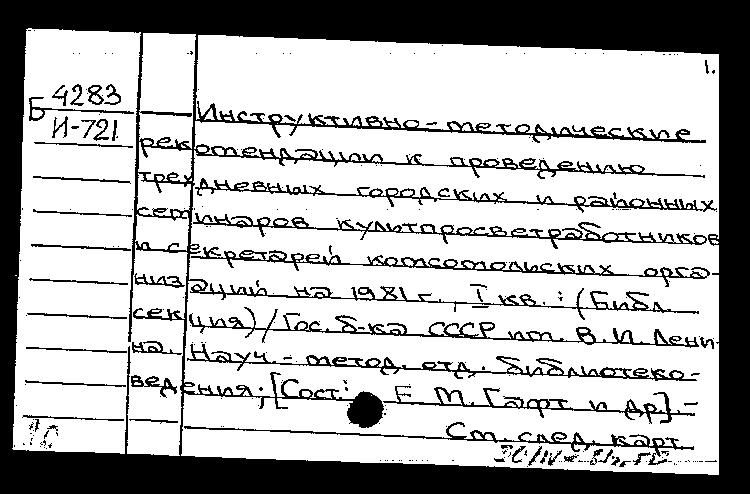 1.
Б 4283
И-721
Инструктивно-методические
рекомендации к проведению
трехдневных городских и районных
семинаров культпросветработников
и секретарей комсомольских орга-
низаций на 1981 г., I кв.: (Библ.
секция) / Гос. б-ка СССР им. В. И. Лени-
на. Науч.-метод. отд. библиотеко-
ведения; [Сост.: Е. М. Гафт и др.].-
См. след. карт.